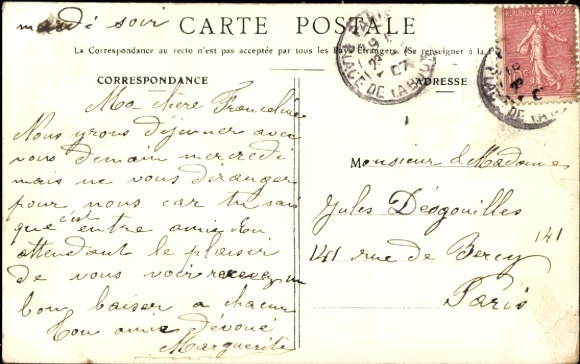 mardi soir
CARTE POSTALE
La Correspondance au recto n'est pas acceptée par tous les Pays Étrangers. (Se renseigner à la
CORRESPONDANCE
Ma chère Franceline
Nous yrons déjeuner avec
vous demain mercredi
mais ne vous deranger
pour nous car tu sais
que c'est entre amie En
attendant le plaisir
de vous voir recevez un
bon baiser a chacun
Ton amie dévoué
Marguerite
ADRESSE
Monsieur & Madame
Jules Déogouilles
141 rue de Bercy 141
Paris
PLACE DE LA